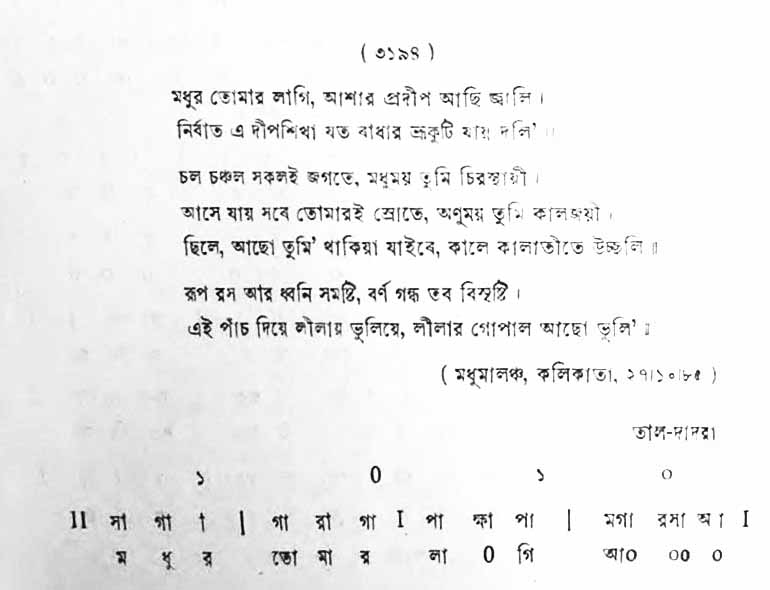 ( ৩১৯৪ )
মধুর তোমার লাগি, আশার প্রদীপ আছি জ্বালি ।
নির্বাত এ দীপশিখা যত বাধার ভ্রূকুটি যায় দলি' ॥
চল চঞ্চল সকলই জগতে, মধুময় তুমি চিরস্থায়ী ।
আসে যায় সবে তোমারই স্রোতে, অণুময় তুমি কালজয়ী ।
ছিলে, আছো তুমি' থাকিয়া যাইবে, কালে কালাতীতে উচ্ছলি ॥
রূপ রস আর ধ্বনি সমষ্টি, বর্ণ গন্ধ তব বিসৃষ্টি ।
এই পাঁচ দিয়ে লীলায় ভুলিয়ে, লীলার গোপাল আছো ভুলি' ॥
( মধুমালঞ্চ, কলিকাতা, ২৭।১০।৮৫ )
তাল-দাদরা
১ 0 ১ ০
II সা গা া | গা রা গা I পা ক্ষা পা | মগা রসা আ । I
ম ধু র তো মা র লা 0 গি আ০ ০০ ০